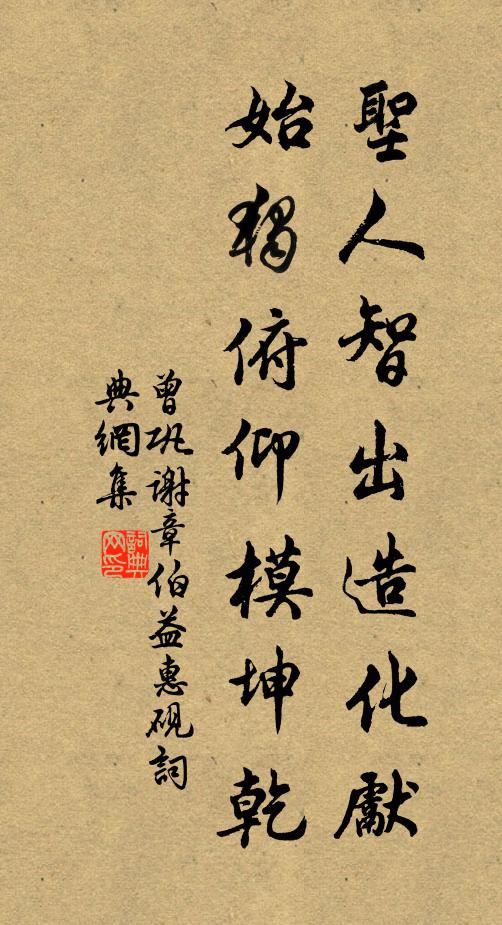 聖人智出造化獻
始獨俯仰模坤乾
曾巩謝章伯益惠硯詞
典網集
詞典网印